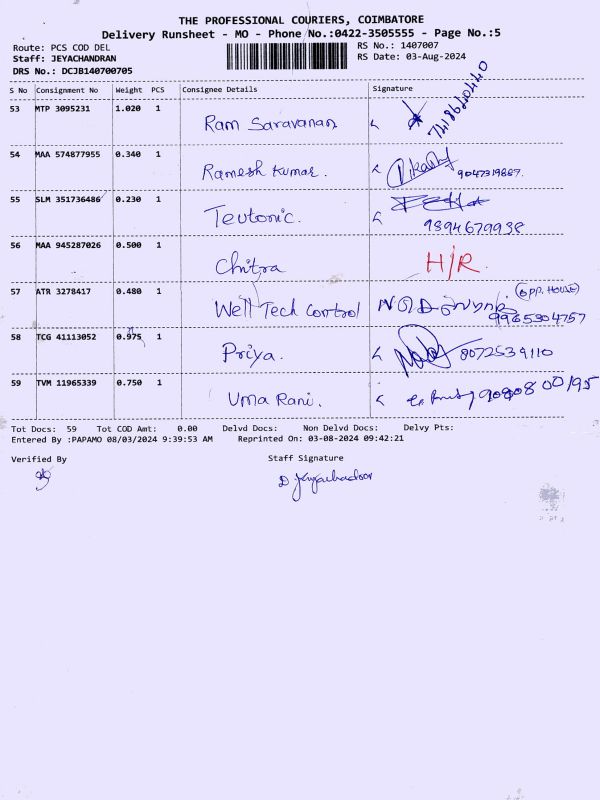 THE PROFESSIONAL COURIERS, COIMBATORE
Delivery Runsheet - MO - Phone No.:0422-3505555 - Page No.:5
Route: PCS COD DEL
RS No.: 1407007
Staff: JEYACHANDRAN
RS Date: 03-Aug-2024
DRS No.: DCJB140700705
S No Consignment No Weight PCS Consignee Details Signature
53 MTP 3095231 1.020 1 Ram Saravanan 7418640440
54 MAA 574877955 0.340 1 Ramesh Kumar.
55 SLM 351736486 0.230 1 Teutonic. 9894679938
56 MAA 945287026 0.500 1 Chitra H/R.
57 ATR 3278417 0.480 1 Well Tech Control (OPP. HOUSE)
9965304757
58 TCG 41113052 0.975 1 Priya. 8072534110
59 TVM 11965339 0.750 1 Uma Rani. 9080800195
Tot Docs: 59 Tot COD Amt: 0.00 Delvd Docs: Non Delvd Docs: Delvy Pts:
Entered By :PAPAMO 08/03/2024 9:39:53 AM Reprinted On: 03-08-2024 09:42:21
Verified By Staff Signature